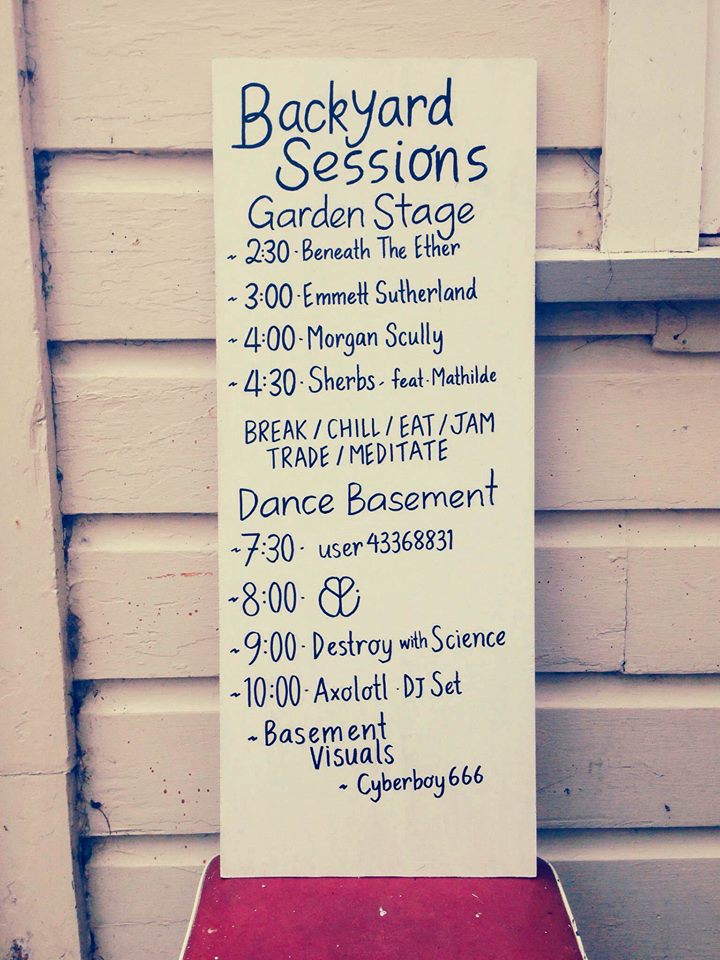 Backyard
Sessions
Garden Stage
~ 2:30 · Beneath The Ether
~ 3:00 · Emmett Sutherland
~ 4:00 · Morgan Scully
~ 4:30 · Sherbs - feat. Mathilde
BREAK / CHILL / EAT / JAM
TRADE / MEDITATE
Dance Basement
~ 7:30 · user 43368831
~ 8:00 ·
~ 9:00 · Destroy with Science
~ 10:00 · Axolotl · DJ Set
~ Basement
Visuals
~ Cyberboy 666